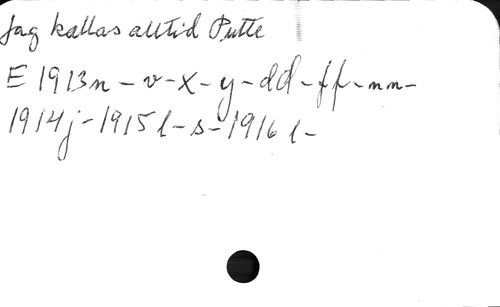 Jag kallas alltid Putte
E 1913n - v - x - y - dd - ff - nn -
1914j - 1915l - s - 1916 l -